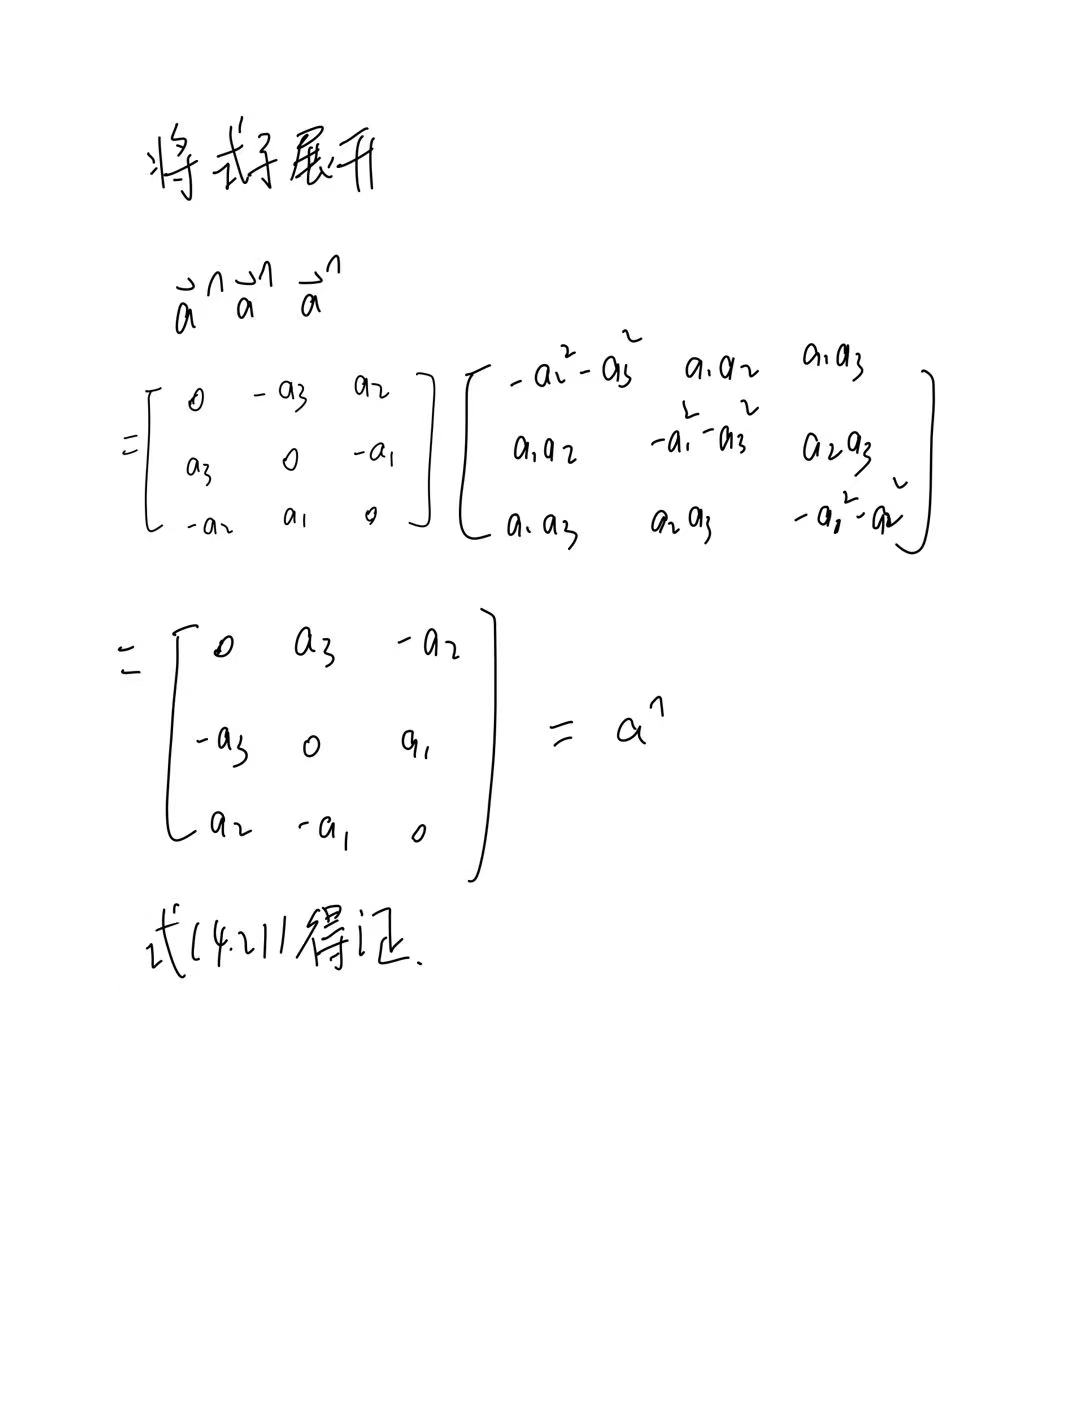 将式子展开
a⃗^ a⃗^ a⃗^
= [ 0 -a3 a2 ; a3 0 -a1 ; -a2 a1 0 ] [ -a2²-a3² a1a2 a1a3 ; a1a2 -a1²-a3² a2a3 ; a1a3 a2a3 -a1²-a2² ]
= [ 0 a3 -a2 ; -a3 0 a1 ; a2 -a1 0 ] = a^
式(4.21)得证.